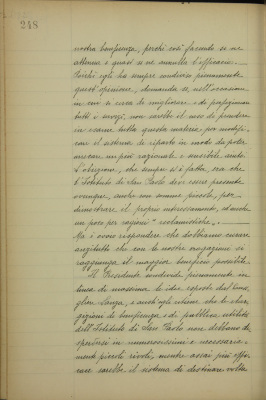 248
nostra beneficenza, perché così facendo se ne
attenua e quasi se ne annulla l'efficacia. -
Poiché egli ha sempre condiviso pienamente
quest'opinione, domanda se, nell'occasione
in cui si cerca di migliorare e di perfezionare
tutti i servizi, non sarebbe il caso di prendere
in esame tutta questa materia, per modifi-
care il sistema di riparto in modo da poter
arrecare un più razionale e sensibile aiuto.
L'obiezione, che sempre si è fatta, era che
l'Istituto di San Paolo deve essere presente
ovunque, anche con somme piccole, per
dimostrare il proprio interessamento, ed anche
un poco per ragioni "reclamistiche".
Ma si deve rispondere che dobbiamo curare
anzitutto che con le nostre erogazioni si
raggiunga il maggior beneficio possibile.
Il Presidente condivide pienamente in
linea di massima le idee esposte dal Consi-
gliere, e anch'egli ritiene che le ero-
gazioni di beneficenza e di pubblica utilità
dell'Istituto di San Paolo non debbano di-
sperdersi in numerosissimi e necessaria-
mente piccoli rivoli, mentre assai più effi-
cace sarebbe il sistema di destinare volta